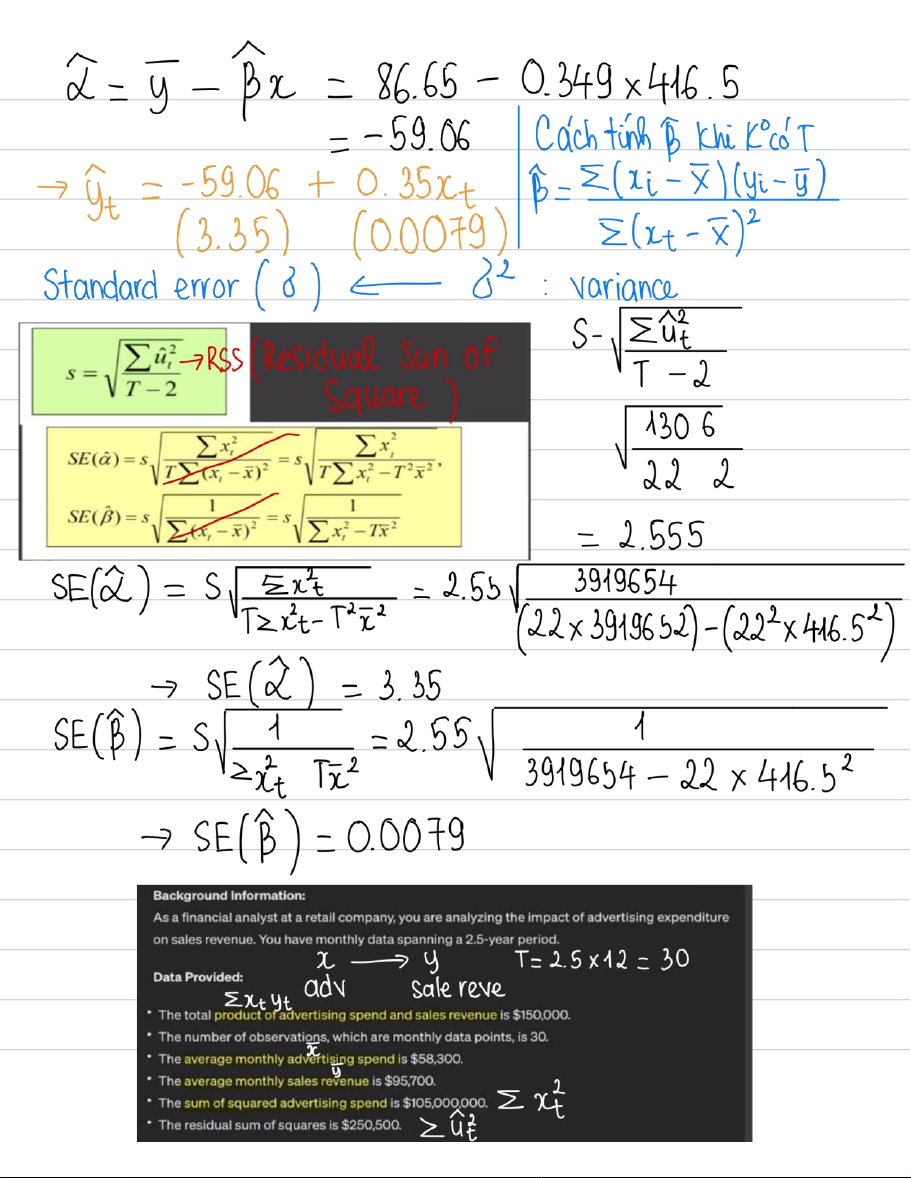 α̂ = ȳ − β̂x = 86.65 − 0.349 × 416.5
= −59.06
→ ŷt = −59.06 + 0.35xt
(3.35) (0.0079)
Cách tính β̂ khi k° có T
β̂ = Σ(xi − x̄)(yi − ȳ) / Σ(xt − x̄)²
Standard error (δ) ← δ² : variance
s = √(Σû²t / T − 2) → RSS (Residual Sun of Square)
SE(α̂) = s√(Σx²t / TΣ(xt − x̄)²) = s√(Σx²t / TΣx²t − T²x̄²),
SE(β̂) = s√(1 / Σ(xt − x̄)²) = s√(1 / Σx²t − Tx̄²)
S- √(Σû²t / T − 2)
√(130 6 / 22 2)
= 2.555
SE(α̂) = S√(Σx²t / TΣx²t − T²x̄²) = 2.55√(3919654 / (22×3919652)−(22²×416.5²))
→ SE(α̂) = 3.35
SE(β̂) = S√(1 / Σx²t Tx̄²) = 2.55√(1 / 3919654 − 22 × 416.5²)
→ SE(β̂) = 0.0079
Background Information:
As a financial analyst at a retail company, you are analyzing the impact of advertising expenditure
on sales revenue. You have monthly data spanning a 2.5-year period.
x → y T = 2.5 × 12 = 30
Data Provided: adv sale reve
Σxt yt
• The total product of advertising spend and sales revenue is $150,000.
• The number of observations, which are monthly data points, is 30.
x̄
• The average monthly advertising spend is $58,300.
ȳ
• The average monthly sales revenue is $95,700.
• The sum of squared advertising spend is $105,000,000. Σ x²t
• The residual sum of squares is $250,500. Σ û²t